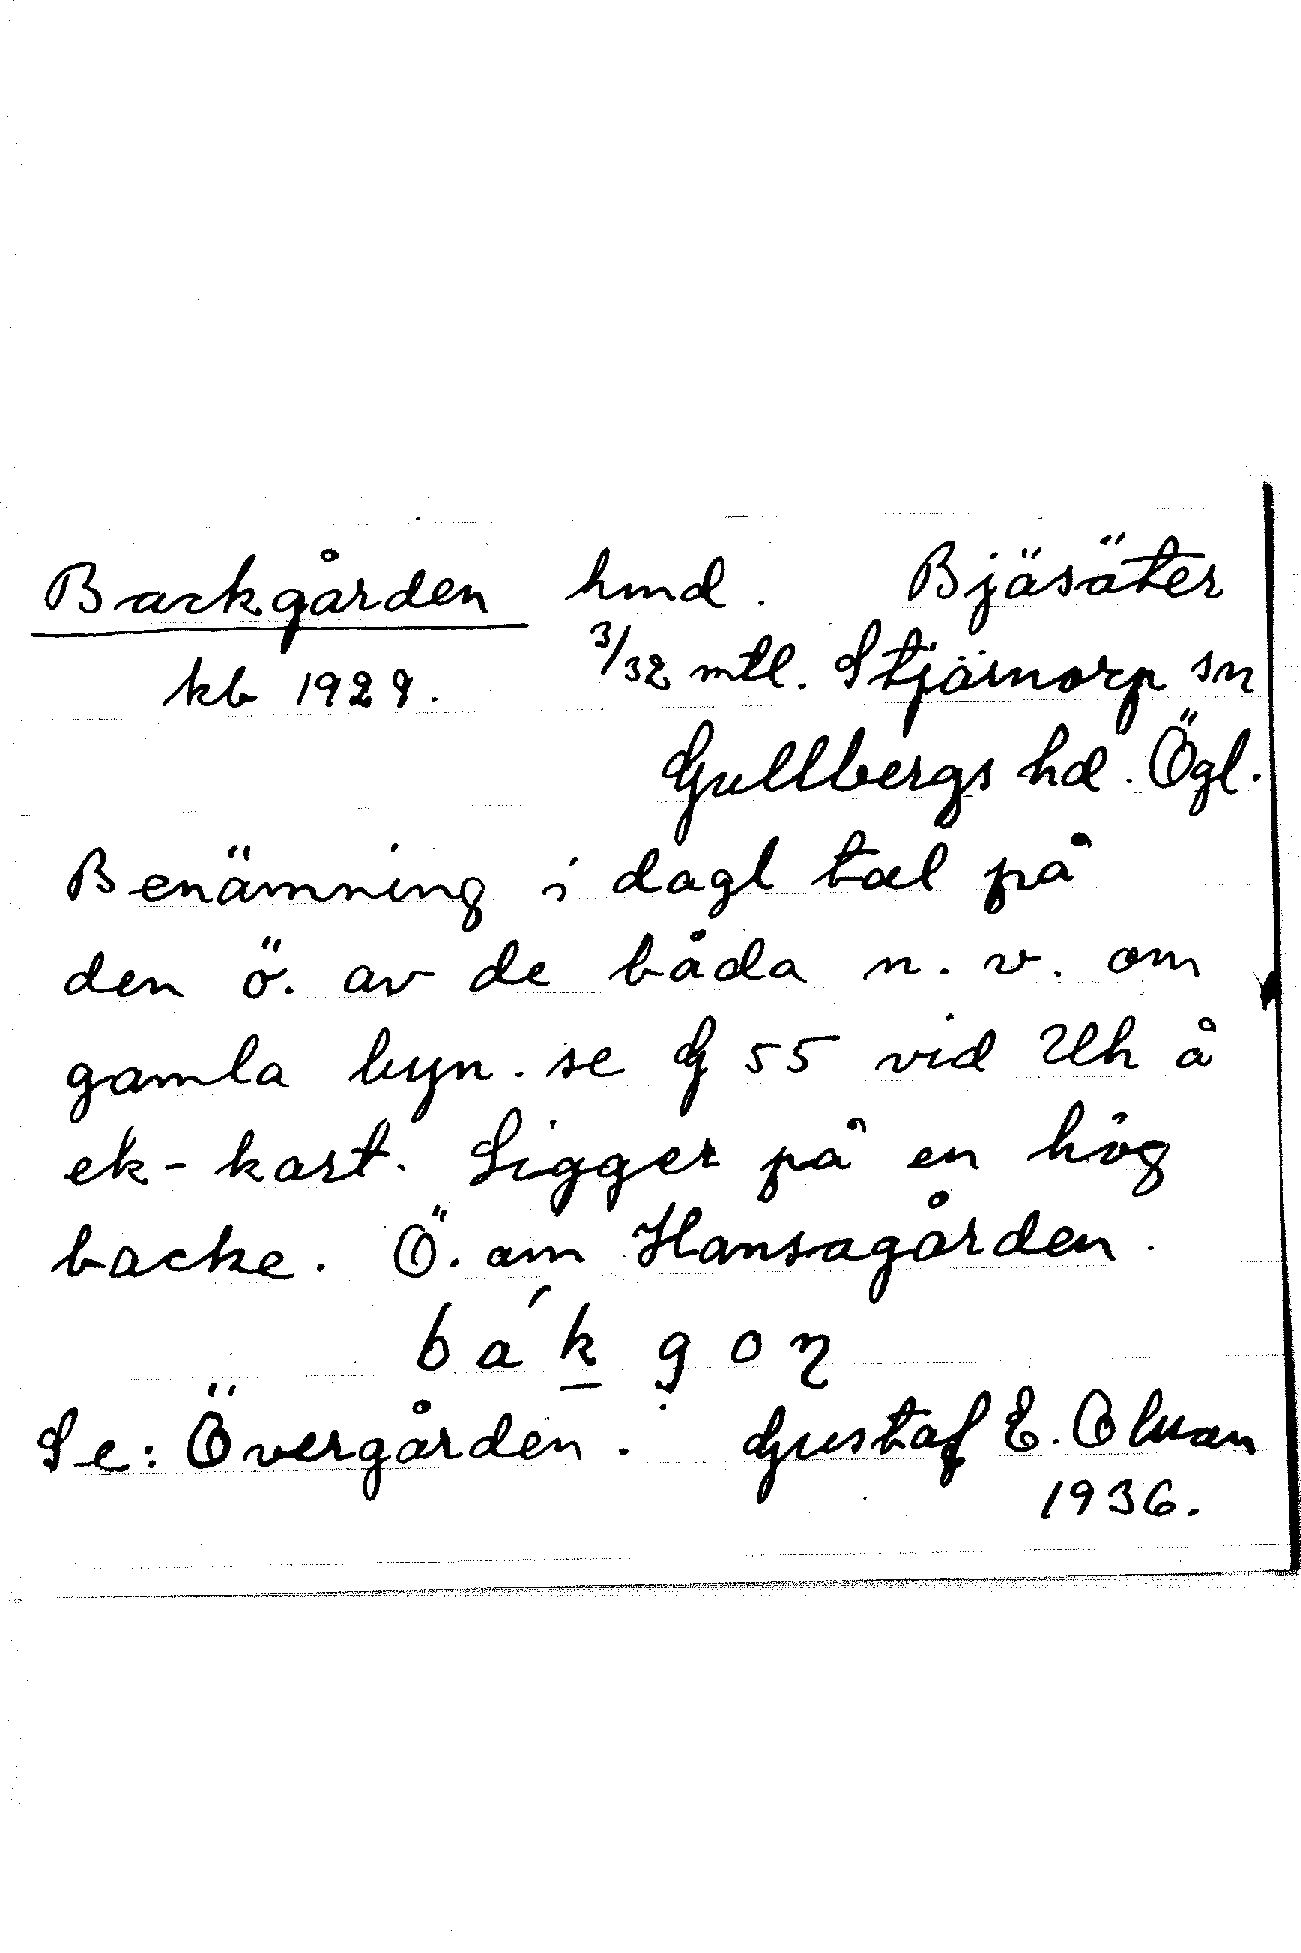 Backgården hmd. Bjäsäter
kb 1929. 3/32 mtl. Stjärnorp sn
Gullbergs hd. Ögl.
Benämning i dagl tal på
den ö. av de båda n. v. om
gamla byn. se G 55 vid Uh å
ek-kart. Ligger på en hög
backe. Ö. om Hansagården.
Se: Övergården. Gustaf E. Olsson
1936.